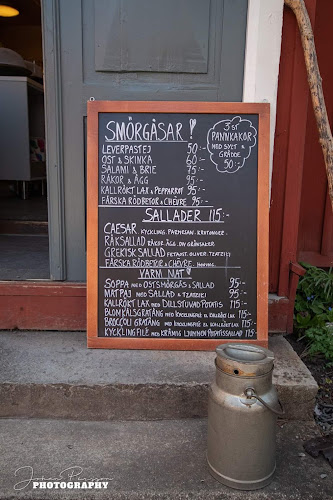 SMÖRGÅSAR !
3 ST
PANNKAKOR
MED SYLT &
GRÄDDE
50:-
LEVERPASTEJ 50:-
OST & SKINKA 60:-
SALAMI & BRIE 95:-
RÄKOR & ÄGG 95:-
KALLRÖKT LAX & PEPPARROT 95:-
FÄRSKA RÖDBETOR & CHÈVRE 95:-
SALLADER 115:-
CAESAR KYCKLING, PARMESAN, KRUTONGER
RÄKSALLAD RÄKOR, ÄGG, DIV GRÖNSAKER
GREKISK SALLAD FETAOST, OLIVER, TZATZIKI
FÄRSKA RÖDBETOR & CHÈVRE, HONUNG
VARM MAT
SOPPA MED OSTSMÖRGÅS & SALLAD 95:-
MATPAJ MED SALLAD & TZATZIKI 95:-
KALLRÖKT LAX MED DILLSTUVAD POTATIS 115:-
BLOMKÅLSGRATÄNG MED KALLRÖKT LAX 115:-
BROCCOLI GRATÄNG MED KALLRÖKT LAX 115:-
KYCKLINGFILÉ MED KRÄMIG LJUMMEN POTATISSALLAD 115:-
PHOTOGRAPHY